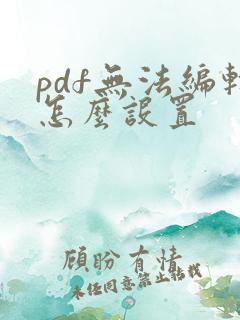 pdf無法編輯
怎麼設置
願盼有情
未任同意禁止轉載